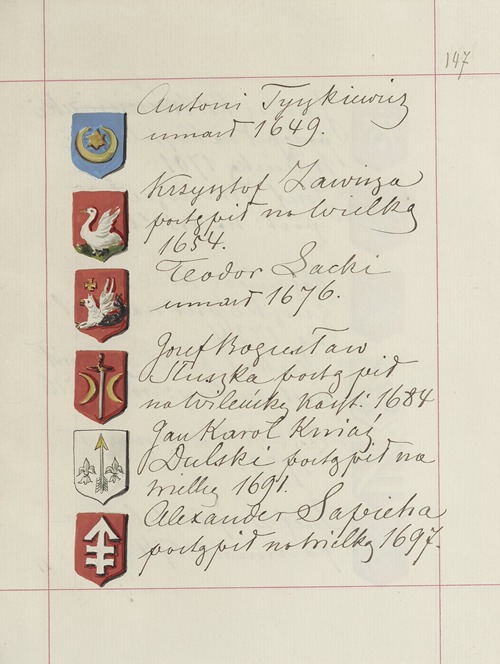 147
Antoni Tyszkiewicz
umarł 1649.
Krzysztof Zawisza
postąpił na wielką
1654.
Teodor Lacki
umarł 1676.
Józef Bogusław
Słuszka postąpił
na wileńską Kaszt: 1684
Jan Karol Kniaź
Dolski postąpił na
wielką 1691.
Alexander Sapieha
postąpił na wielką 1697.